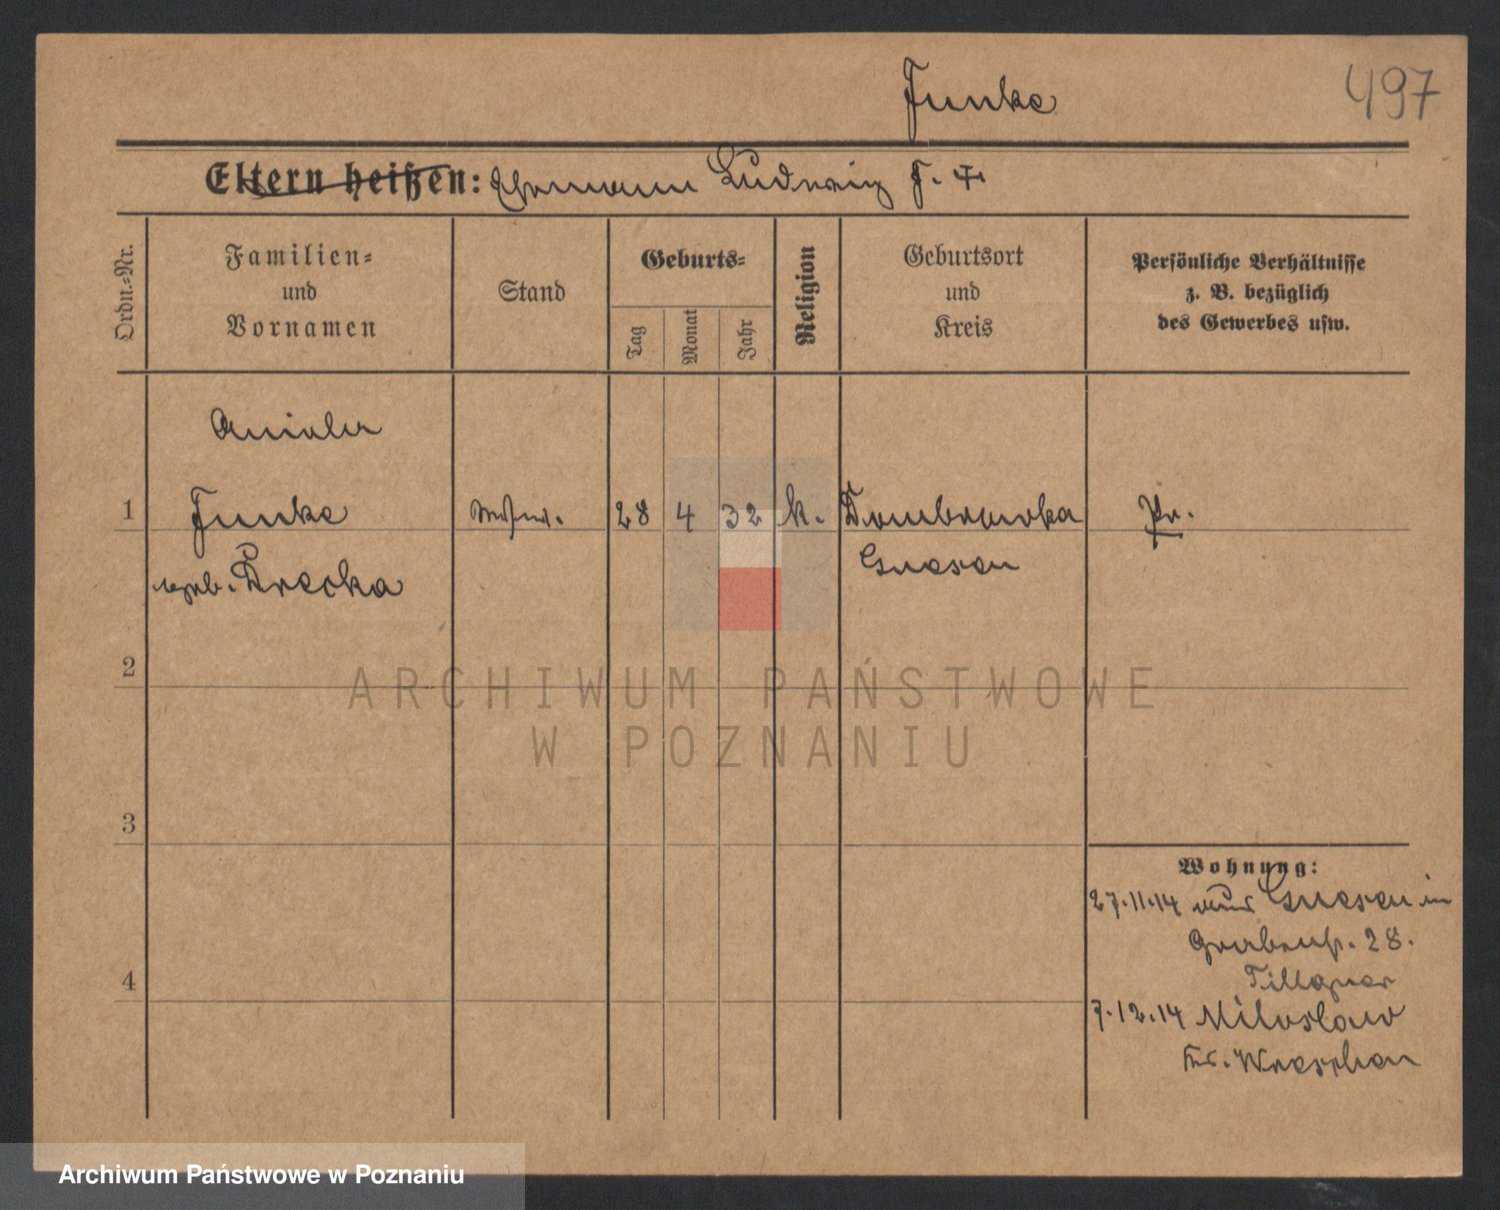 Funke
497
Eltern heißen: Ehemann Ludwig F. †
Ordn.-Nr.
Familien-
und
Vornamen
Stand
Geburts-
Tag
Monat
Jahr
Religion
Geburtsort
und
Kreis
Persönliche Verhältnisse
z. B. bezüglich
des Gewerbes usw.
Aniela
1 Funke Witw. 28 4 32 k. Dombrowka Pr.
geb. Drecka Gnesen
2
ARCHIWUM PAŃSTWOWE
W POZNANIU
3
Wohnung:
27.11.14 aus Gnesen in
Grabenstr. 28.
4
7.12.14 Miloslaw
Kr. Wreschen
Archiwum Państwowe w Poznaniu